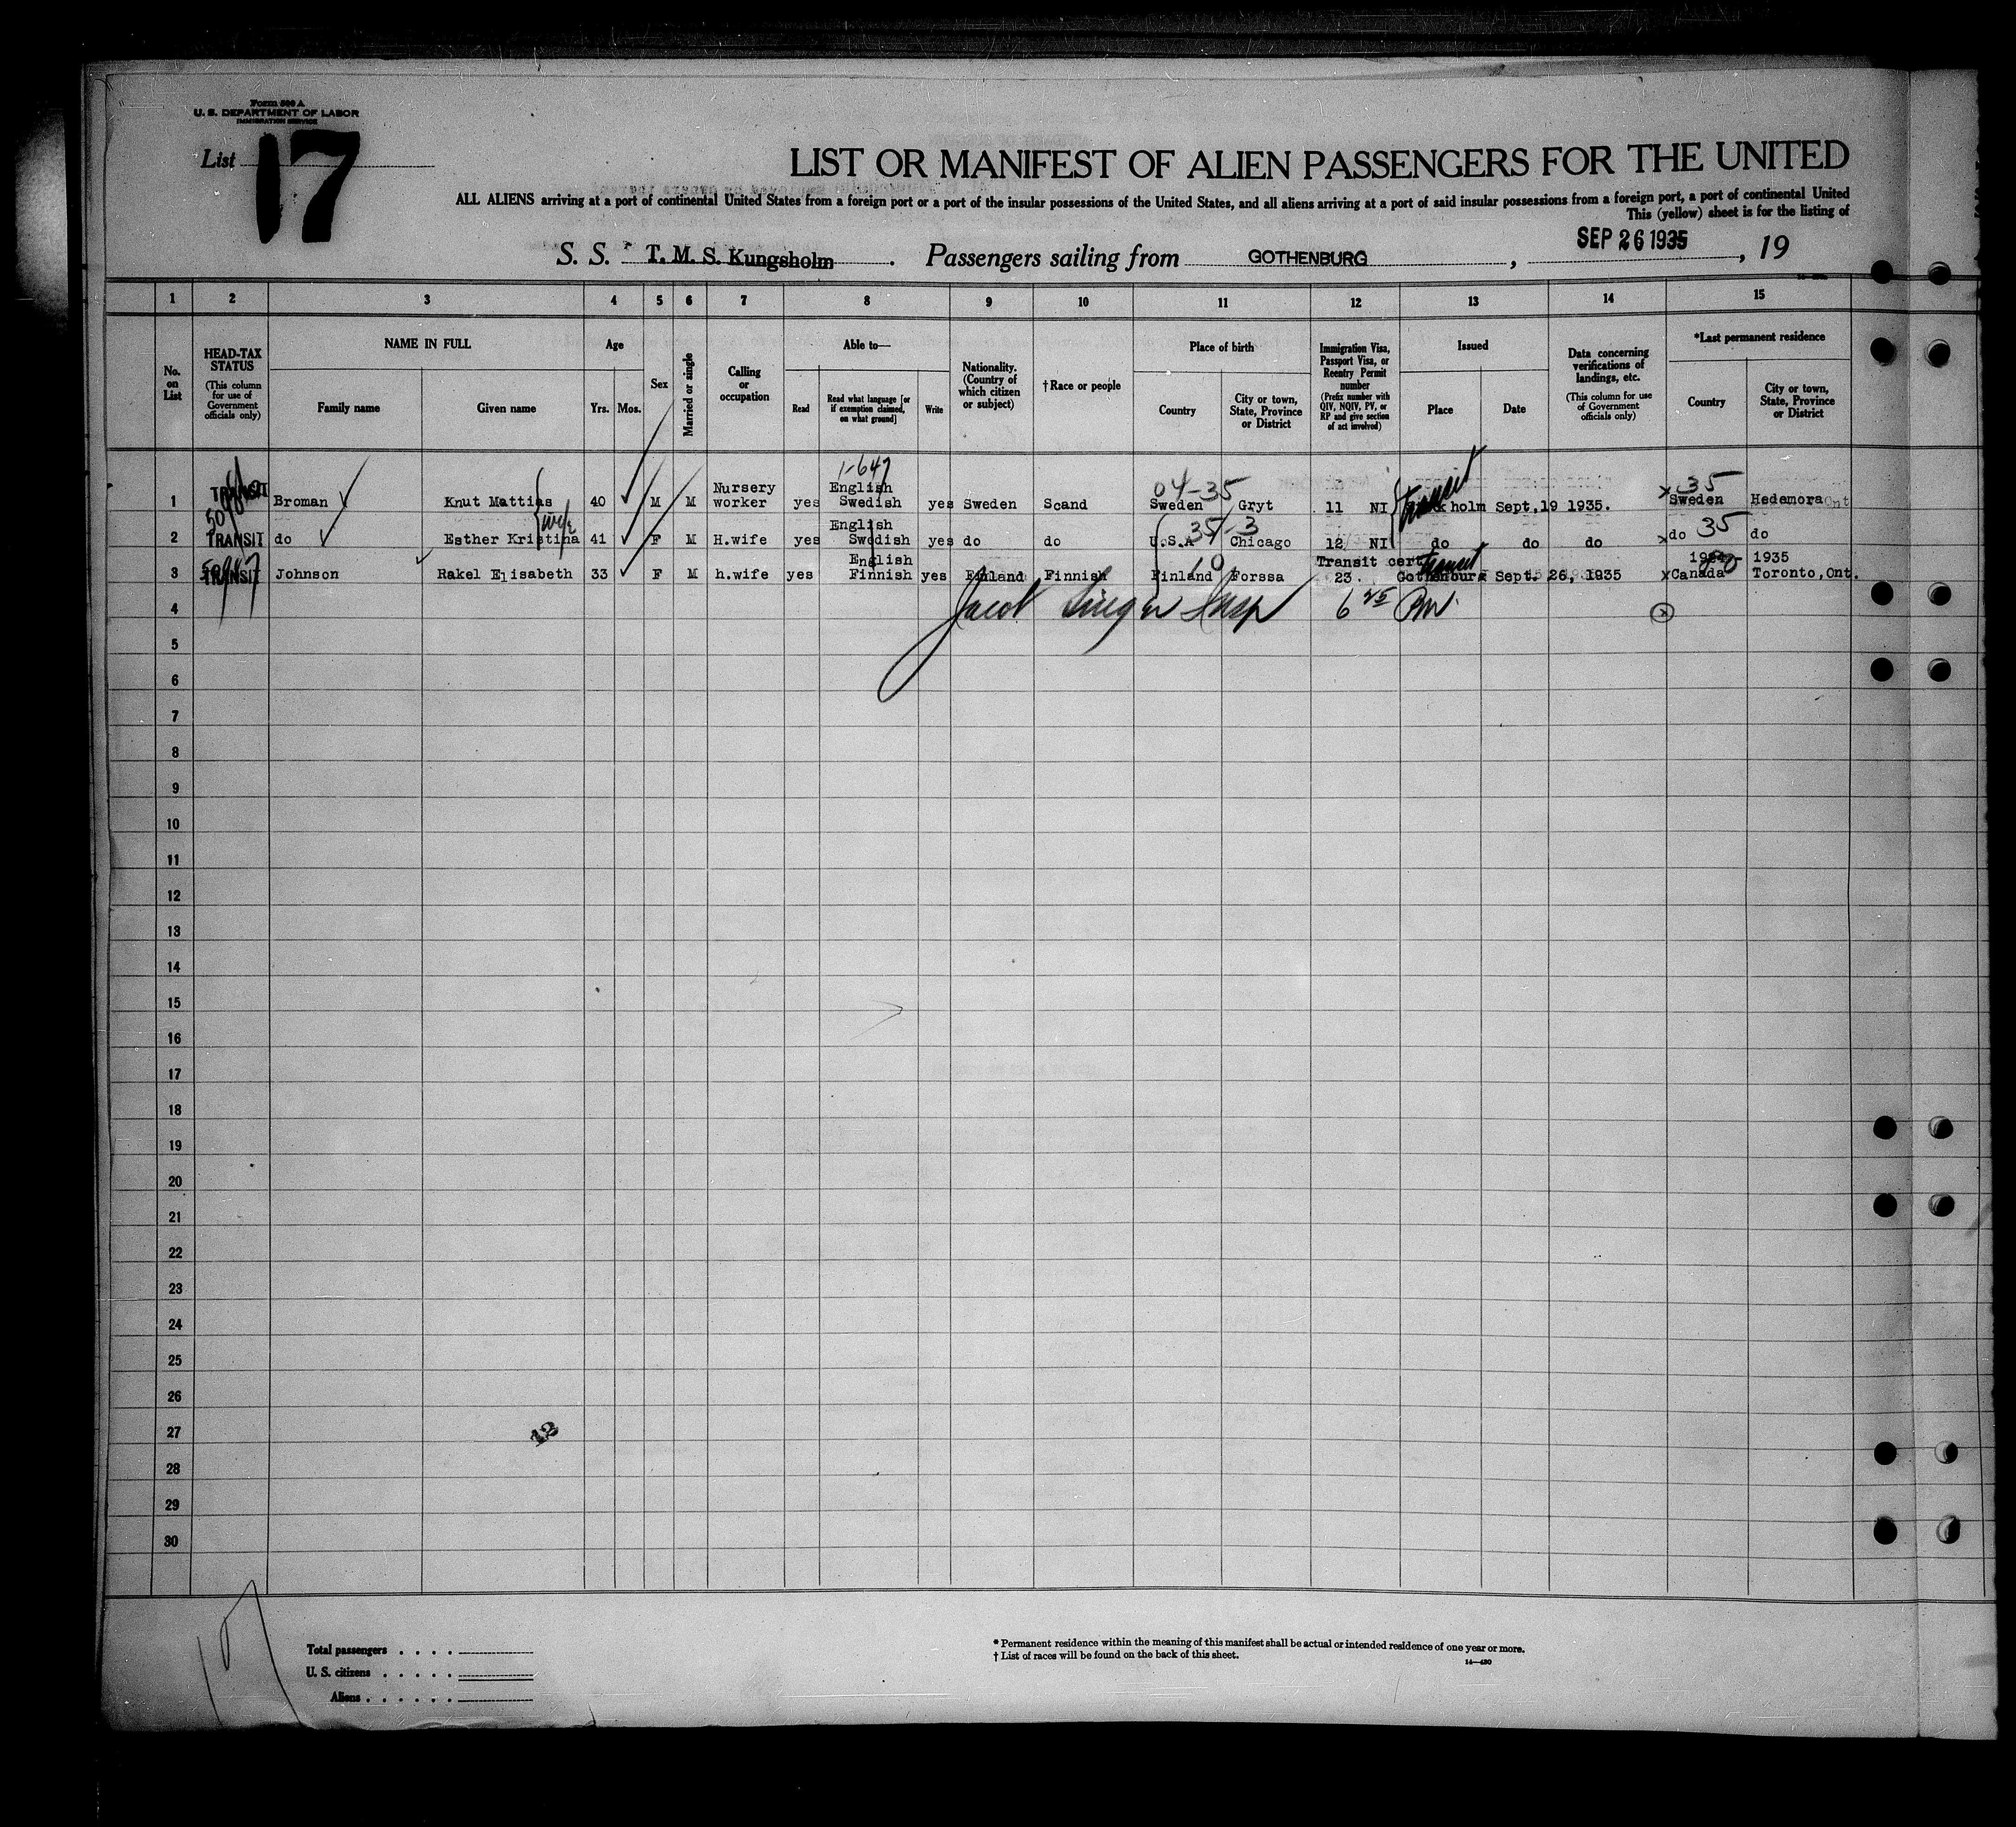 Form 500 A
U. S. DEPARTMENT OF LABOR
IMMIGRATION SERVICE
List 17
LIST OR MANIFEST OF ALIEN PASSENGERS FOR THE UNITED
ALL ALIENS arriving at a port of continental United States from a foreign port or a port of the insular possessions of the United States, and all aliens arriving at a port of said insular possessions from a foreign port, a port of continental United
This (yellow) sheet is for the listing of
S. S. T. M. S. Kungsholm. Passengers sailing from GOTHENBURG, SEP 26 1935, 19
1 2 3 4 5 6 7 8 9 10 11 12 13 14 15
No. on List
HEAD-TAX STATUS
(This column for use of Government officials only)
NAME IN FULL
Family name
Given name
Age
Yrs. Mos.
Sex
Married or single
Calling or occupation
Able to—
Read
Read what language [or if exemption claimed, on what ground]
Write
Nationality. (Country of which citizen or subject)
† Race or people
Place of birth
Country
City or town, State, Province or District
Immigration Visa, Passport Visa, or Reentry Permit number
(Prefix number with QIV, NQIV, PV, or RP and give section of act involved)
Issued
Place
Date
Data concerning verifications of landings, etc.
(This column for use of Government officials only)
*Last permanent residence
Country
City or town, State, Province or District
1-647
04-35
35
1 TRANSIT Broman Knut Mattias 40 M M Nursery worker yes English Swedish yes Sweden Scand Sweden Gryt 11 NI Transit holm Sept.19 1935. x Sweden Hedemora Ont
wife
35-3
35
2 TRANSIT do Esther Kristina 41 F M H.wife yes English Swedish yes do do U.S.A Chicago 12 NI do do do x do do
3 TRANSIT Johnson Rakel Elisabeth 33 F M h.wife yes English Finnish yes Finland Finnish Finland Forssa Transit cert 23. transit Gothenburg Sept. 26, 1935 x Canada 1935 Toronto, Ont.
4 Jacob Singer Insp 6 25 PM. x
5
6
7
8
9
10
11
12
13
14
15
16
17
18
19
20
21
22
23
24
25
26
27
12
28
29
30
Total passengers . . . .
U. S. citizens . . . . .
Aliens . . . . . .
* Permanent residence within the meaning of this manifest shall be actual or intended residence of one year or more.
† List of races will be found on the back of this sheet.
14—430